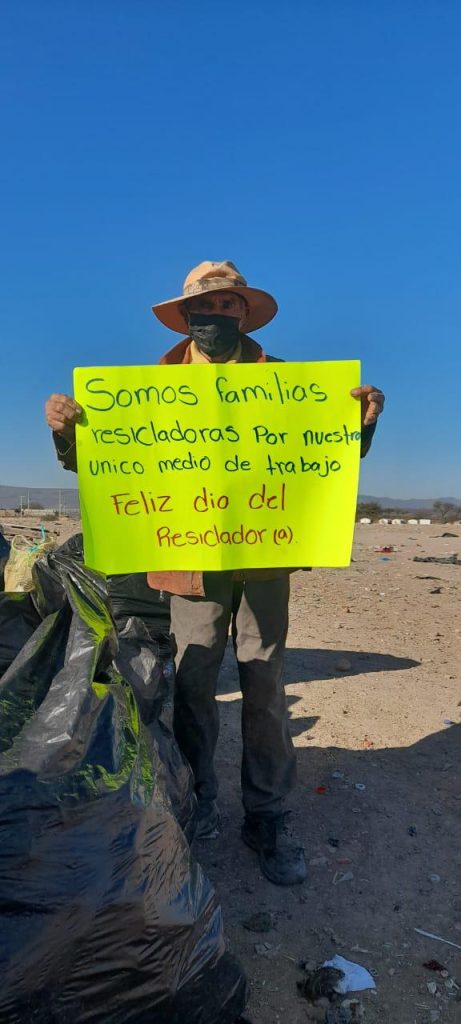 Somos familias
resicladoras Por nuestro
unico medio de trabajo
Feliz dia del
Resiclador (a).